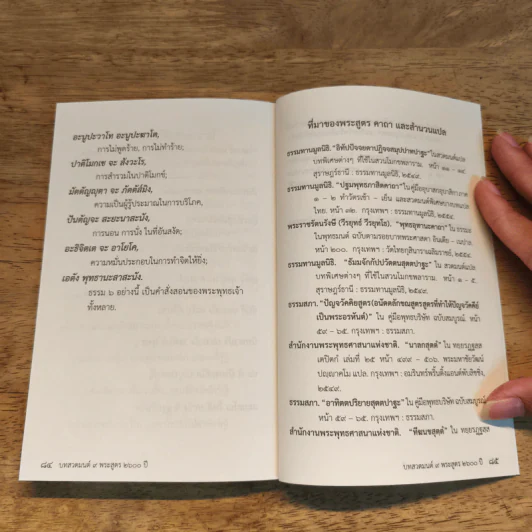 อะนูปะวาโท อะนูปะฆาโต,
การไม่พูดร้าย, การไม่ทำร้าย;
ปาติโมกเข จะ สังวะโร,
การสำรวมในปาติโมกข์;
มัตตัญญุตา จะ ภัตตัส๎มิง,
ความเป็นผู้รู้ประมาณในการบริโภค,
ปันตัญจะ สะยะนาสะนัง,
การนอน การนั่ง ในที่อันสงัด;
อะธิจิตเต จะ อาโยโค,
ความหมั่นประกอบในการทำจิตให้ยิ่ง;
เอตัง พุทธานะสาสะนัง.
ธรรม ๖ อย่างนี้ เป็นคำสั่งสอนของพระพุทธเจ้า
ทั้งหลาย.
๘๔ บทสวดมนต์ ๙ พระสูตร ๒๖๐๐ ปี
ที่มาของพระสูตร คาถา และสำนวนแปล
ธรรมทานมูลนิธิ. "อิทัปปัจจยตาปฏิจจสมุปปาทปาฐะ" ในสวดมนต์แปล
บทพิเศษต่างๆ ที่ใช้ในสวนโมกขพลาราม. หน้า
สุราษฎร์ธานี : ธรรมทานมูลนิธิ,
ธรรมทานมูลนิธิ. "ปฐมพุทธภาสิตคาถา" ใน คู่มืออุบาสกอุบาสิกา ภาค
๑ – ๒ ทำวัตรเช้า – เย็น และสวดมนต์พิเศษบางบทแปล
ไทย. หน้า ๓๒. กรุงเทพฯ : ธรรมสภา,
พระราชรัตนรังษี (วีรยุทธ์ วีรยุทโธ). "พุทธอุทานะคาถา" ใน สวดมนต์
ในพุทธมนต์ ฉบับตามรอยบาทพระศาสดา อินเดีย – เนปาล.
หน้า ๒๐๐. กรุงเทพฯ : วัดไทยกุสินาราเฉลิมราชย์,
ธรรมทานมูลนิธิ. "ธัมมจักกัปปวัตตนสุตตปาฐะ" ใน สวดมนต์แปล
บทพิเศษต่างๆ ที่ใช้ในสวนโมกขพลาราม. หน้า ๑ – ๕.
สุราษฎร์ธานี : ธรรมทานมูลนิธิ,
ธรรมสภา. "ปัญจวัคคิยสูตร(อนัตตลักขณสูตรสูตรที่ทำให้ปัญจวัคคีย์
เป็นพระอรหันต์)" ใน คู่มือพุทธบริษัท ฉบับสมบูรณ์. หน้า
๕๙ – ๖๕. กรุงเทพฯ : ธรรมสภา.
สำนักงานพระพุทธศาสนาแห่งชาติ. "นาลกสุตต์" ใน ทยยรฏฐสส
เตปิฎกํ เล่มที่ ๒๕ หน้า ๔๙๙ – ๕๐๖. พระมหาชัยวัฒน์
ปญฺญาคโม แปล. กรุงเทพฯ : อมรินทร์พริ้นติ้งแอนด์พับลิชชิ่ง,
๒๕๔๙.
ธรรมสภา. "อาทิตตปริยายสุตตปาฐะ" ใน คู่มือพุทธบริษัท ฉบับสมบูรณ์.
หน้า ๕๙ – ๖๕. กรุงเทพฯ : ธรรมสภา.
สำนักงานพระพุทธศาสนาแห่งชาติ. "ทีฆนขสุตต์" ใน ทยยรฏฐสส
บทสวดมนต์ ๙ พระสูตร ๒๖๐๐ ปี ๘๕